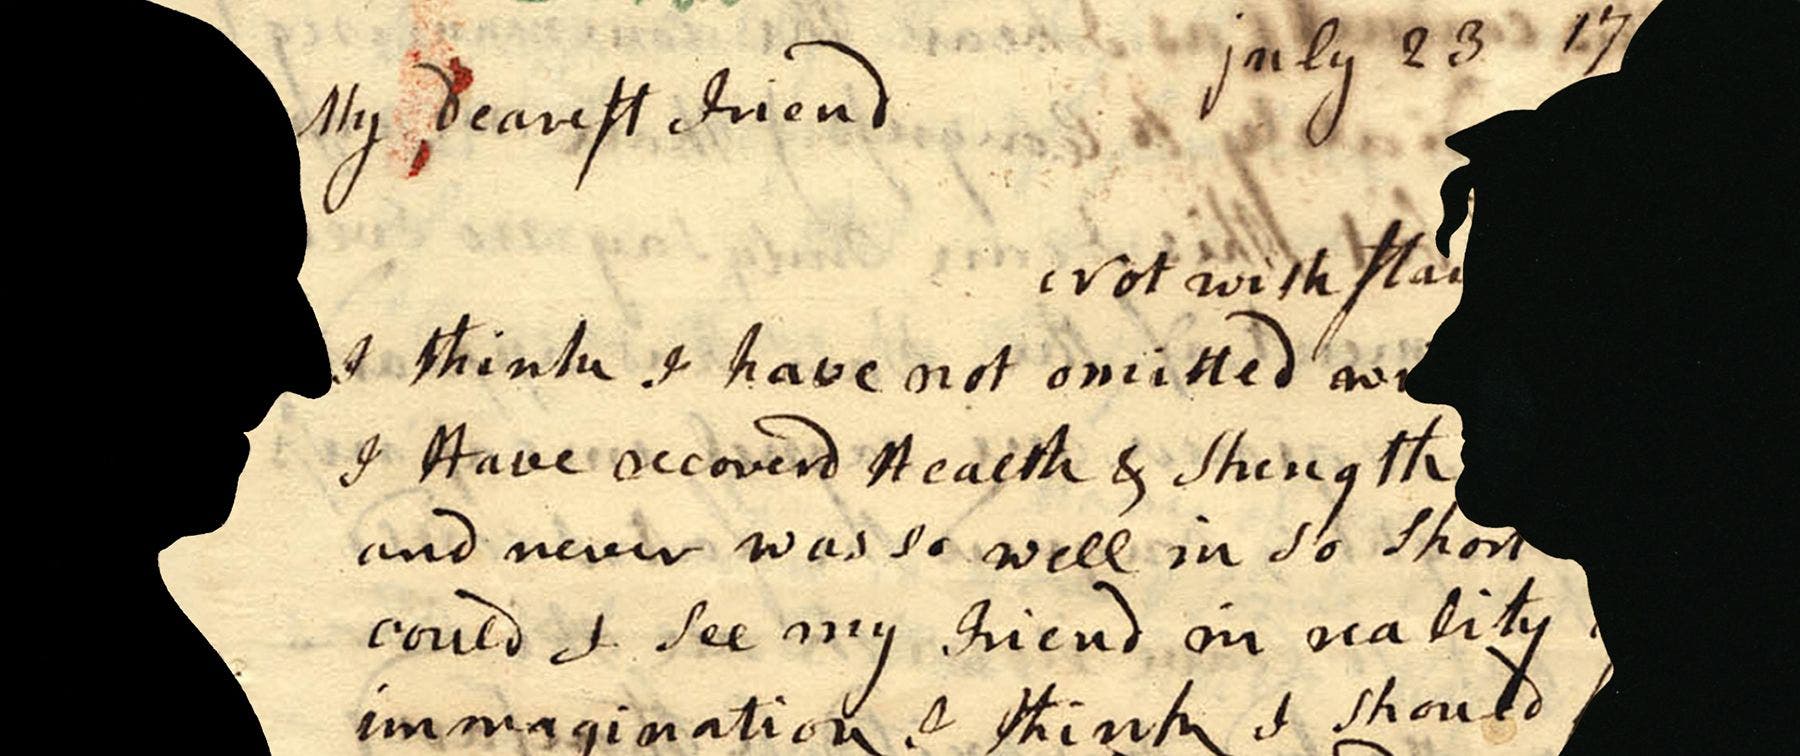 July 23 17
My dearest Friend
Notwithstan
I think I have not omitted
I Have recoverd Health & Strength
and never was so well in so short
could I see my Friend in reality
immagination I think I should